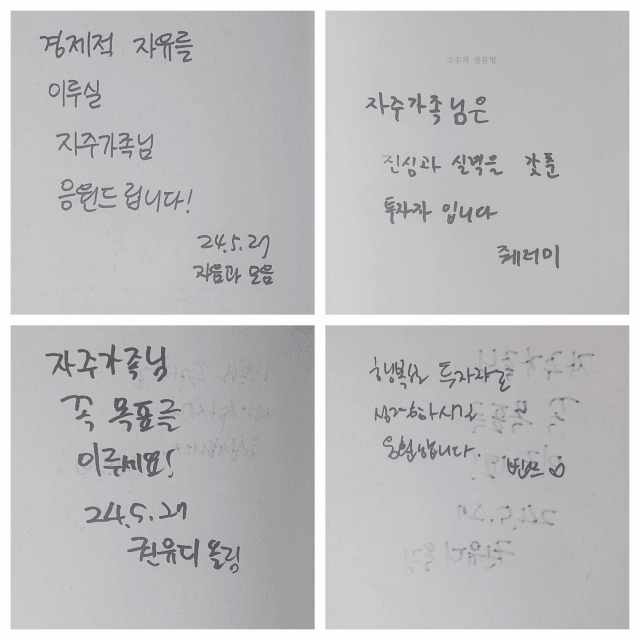 경제적 자유를
이루실
자주가족님
응원드립니다!
24.5.27
자음과 모음
고수의 질문법
자주가족님은
진심과 실벽을 갖춘
투자자 입니다
쥐레미
자주가족님
꼭 목표를
이루세요!
24.5.27
권유디 올림
행복한 투자자로
성장하시길
응원합니다.